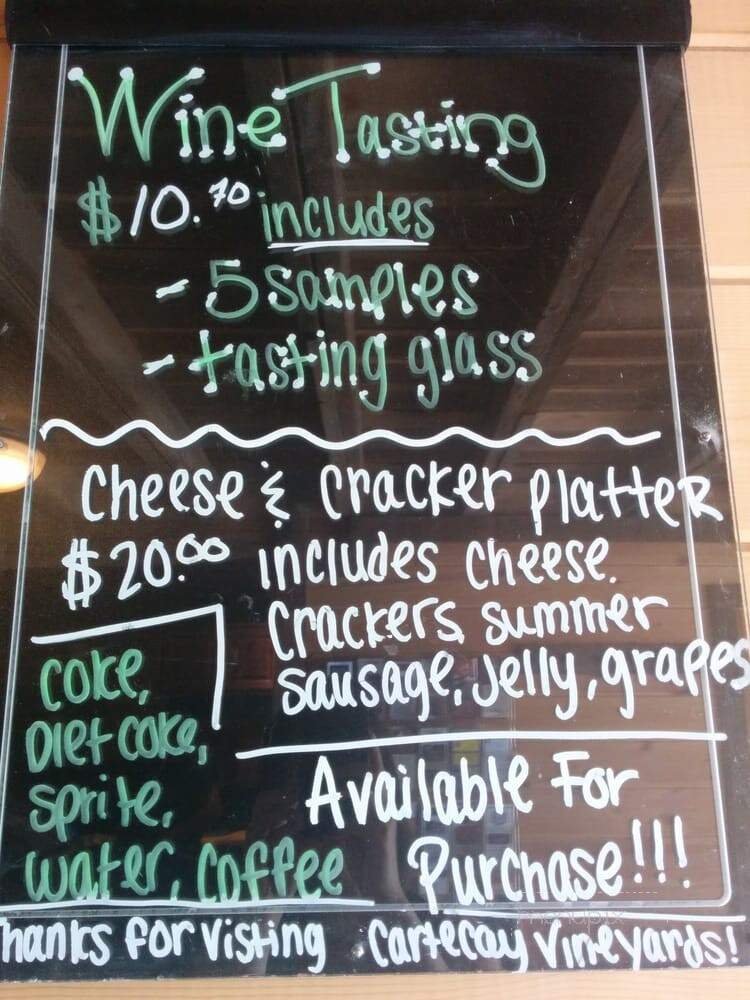 Wine Tasting
$10.70 includes
- 5 samples
- tasting glass
Cheese & Cracker Platter
$20.00 includes cheese,
Crackers, summer
sausage, Jelly, grapes
Coke,
Diet coke,
sprite,
water, Coffee
Available For
Purchase!!!
Thanks for Visting Cartecay Vineyards!
menupix